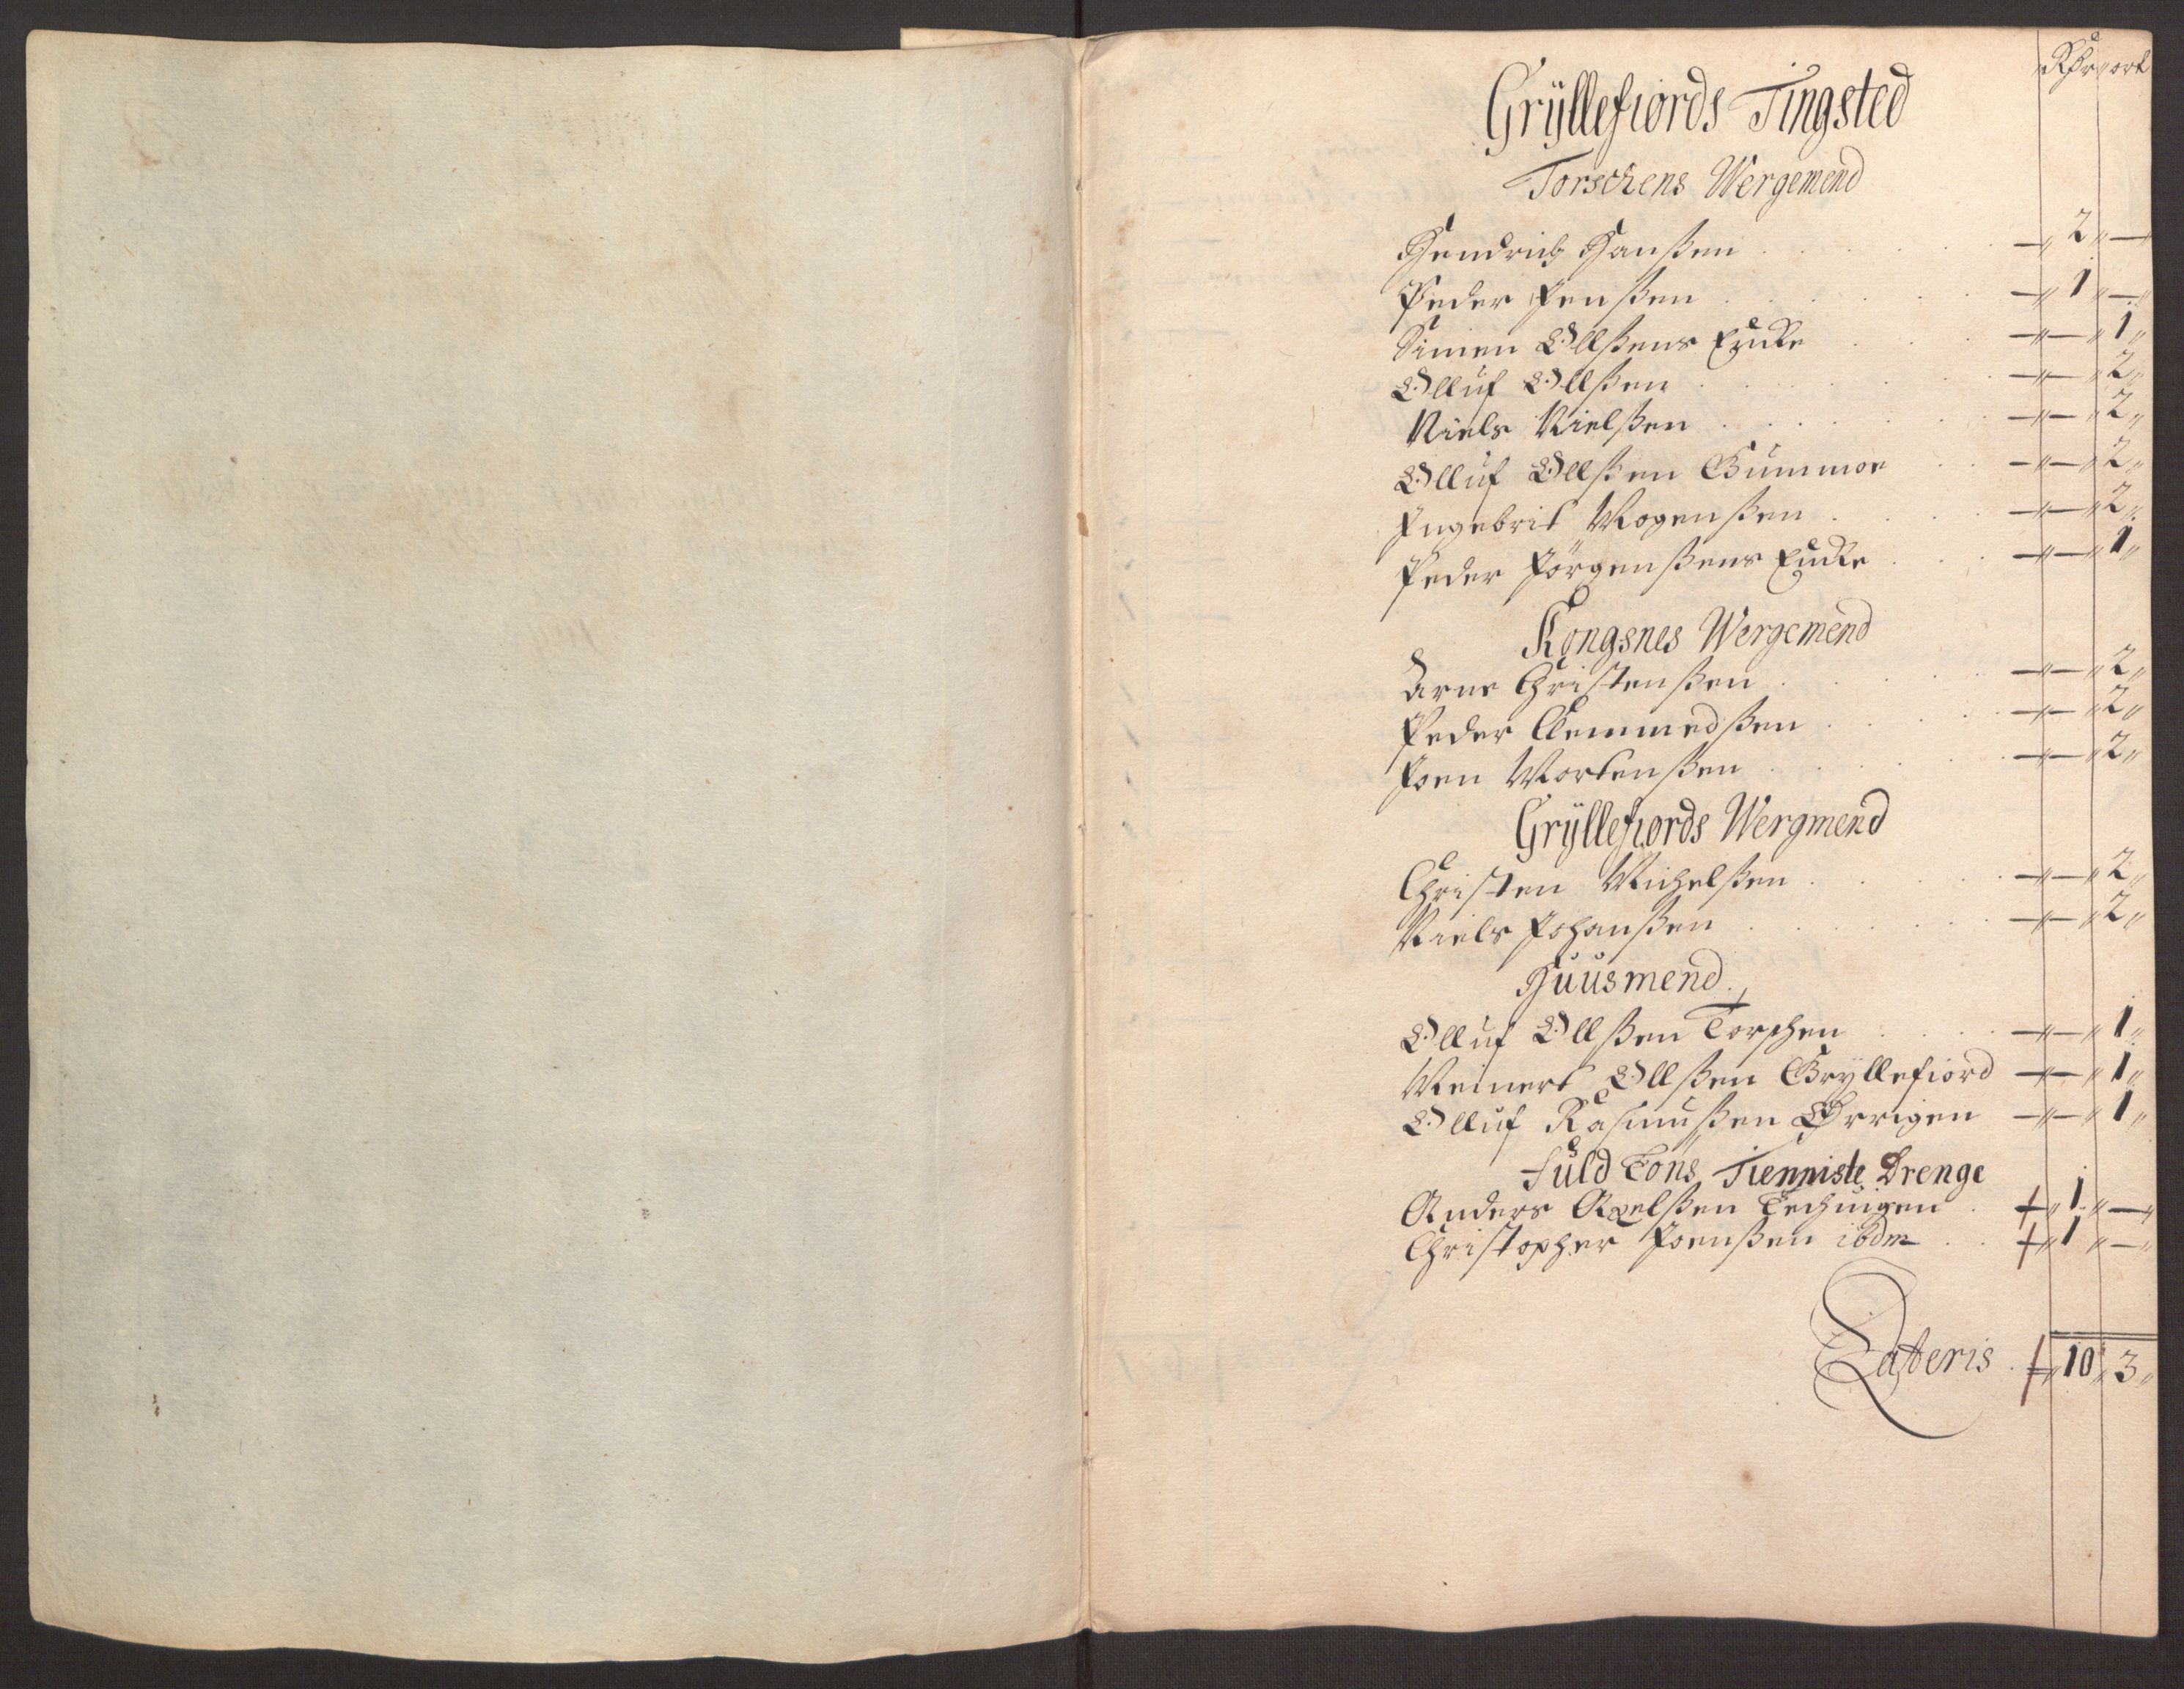 Rdr ort
Gryllefiords Tingsted
Torschens Wergemend
Hendrich Hanßen . . . . . — 2 —
Peder Jenßen . . . . . — 1 —
Simen Ollßens Encke . . . — — 1
Olluf Ollßen . . . . . — — 2
Niels Nielßen . . . . . — — 2
Olluf Ollßen Gummor . . — — 2
Ingebrit Mogenßen . . . . — — 2
Peder Jörgenßens Encke . . . — — 1
Kongsnes Wergemend
Arne Christenßen . . . . — — 2
Peder Clemmedßen . . . . — — 2
Joen Mortenßen . . . . . — — 2
Gryllefiords Wergmend
Christen Michelßen . . . . — — 2
Niels Johanßen . . . . . — — 2
Huusmend.
Olluf Ollßen Torschen . . . . — — 1
Meinert Ollßen Gryllefiord — — 1
Olluf Rasmußen — — 1
Fuld Löns Tienniste Drenge
Anders Axelßen . — 1 —
Christopher Joenßen ibdm . . — 1 —
Lateris . — 10 3